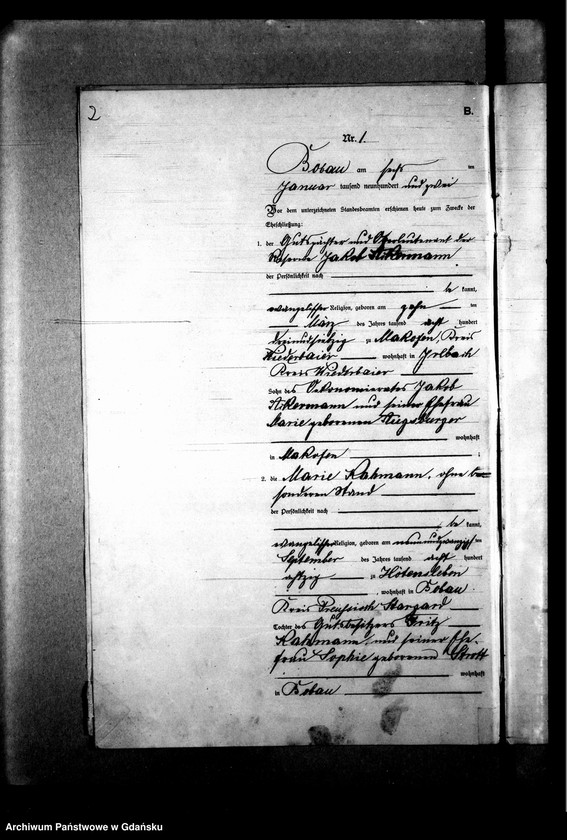 2
B.
Nr. 1.
Bobau am sechs ten
Januar tausend neunhundert und zwei
Vor dem unterzeichneten Standesbeamten erschienen heute zum Zwecke der
Eheschließung:
1. der Gutspächter und Oberleutenant der
Reserve Jakob
der Persönlichkeit nach
be kannt,
evangelischer Religion, geboren am zehn ten
März des Jahres tausend acht hundert
dreiundsiebzig zu Makofen, Kreis
Niederbaier wohnhaft in Irlbach
Kreis Niederbaier
Sohn des Oekonomierates Jakob
und seiner Ehefrau
Marie geborenen
wohnhaft
in Makofen ;
2. die Marie Rahmann, ohne be=
sonderen Stand
der Persönlichkeit nach
be kannt,
evangelischer Religion, geboren am neunundzwanzigsten
September des Jahres tausend acht hundert
achtzig zu Hötensleben
, wohnhaft in Bobau
Kreis Preussisch Stargard
Tochter des Gutsbesitzers Fritz
Rahmann und seiner Ehe-
frau Sophie geborenen Strott
wohnhaft
in Bobau
Archiwum Państwowe w Gdańsku